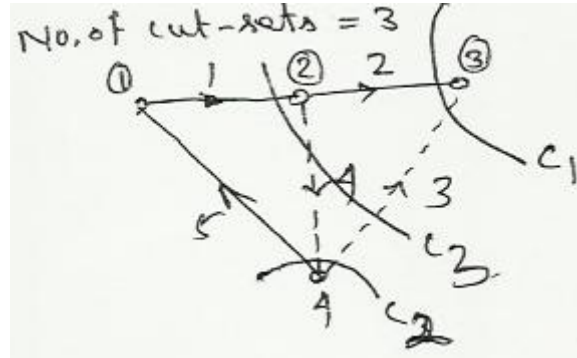 No. of cut-sets = 3
① 1 ② 2 ③
C1
4 3
5
C3
4
C2